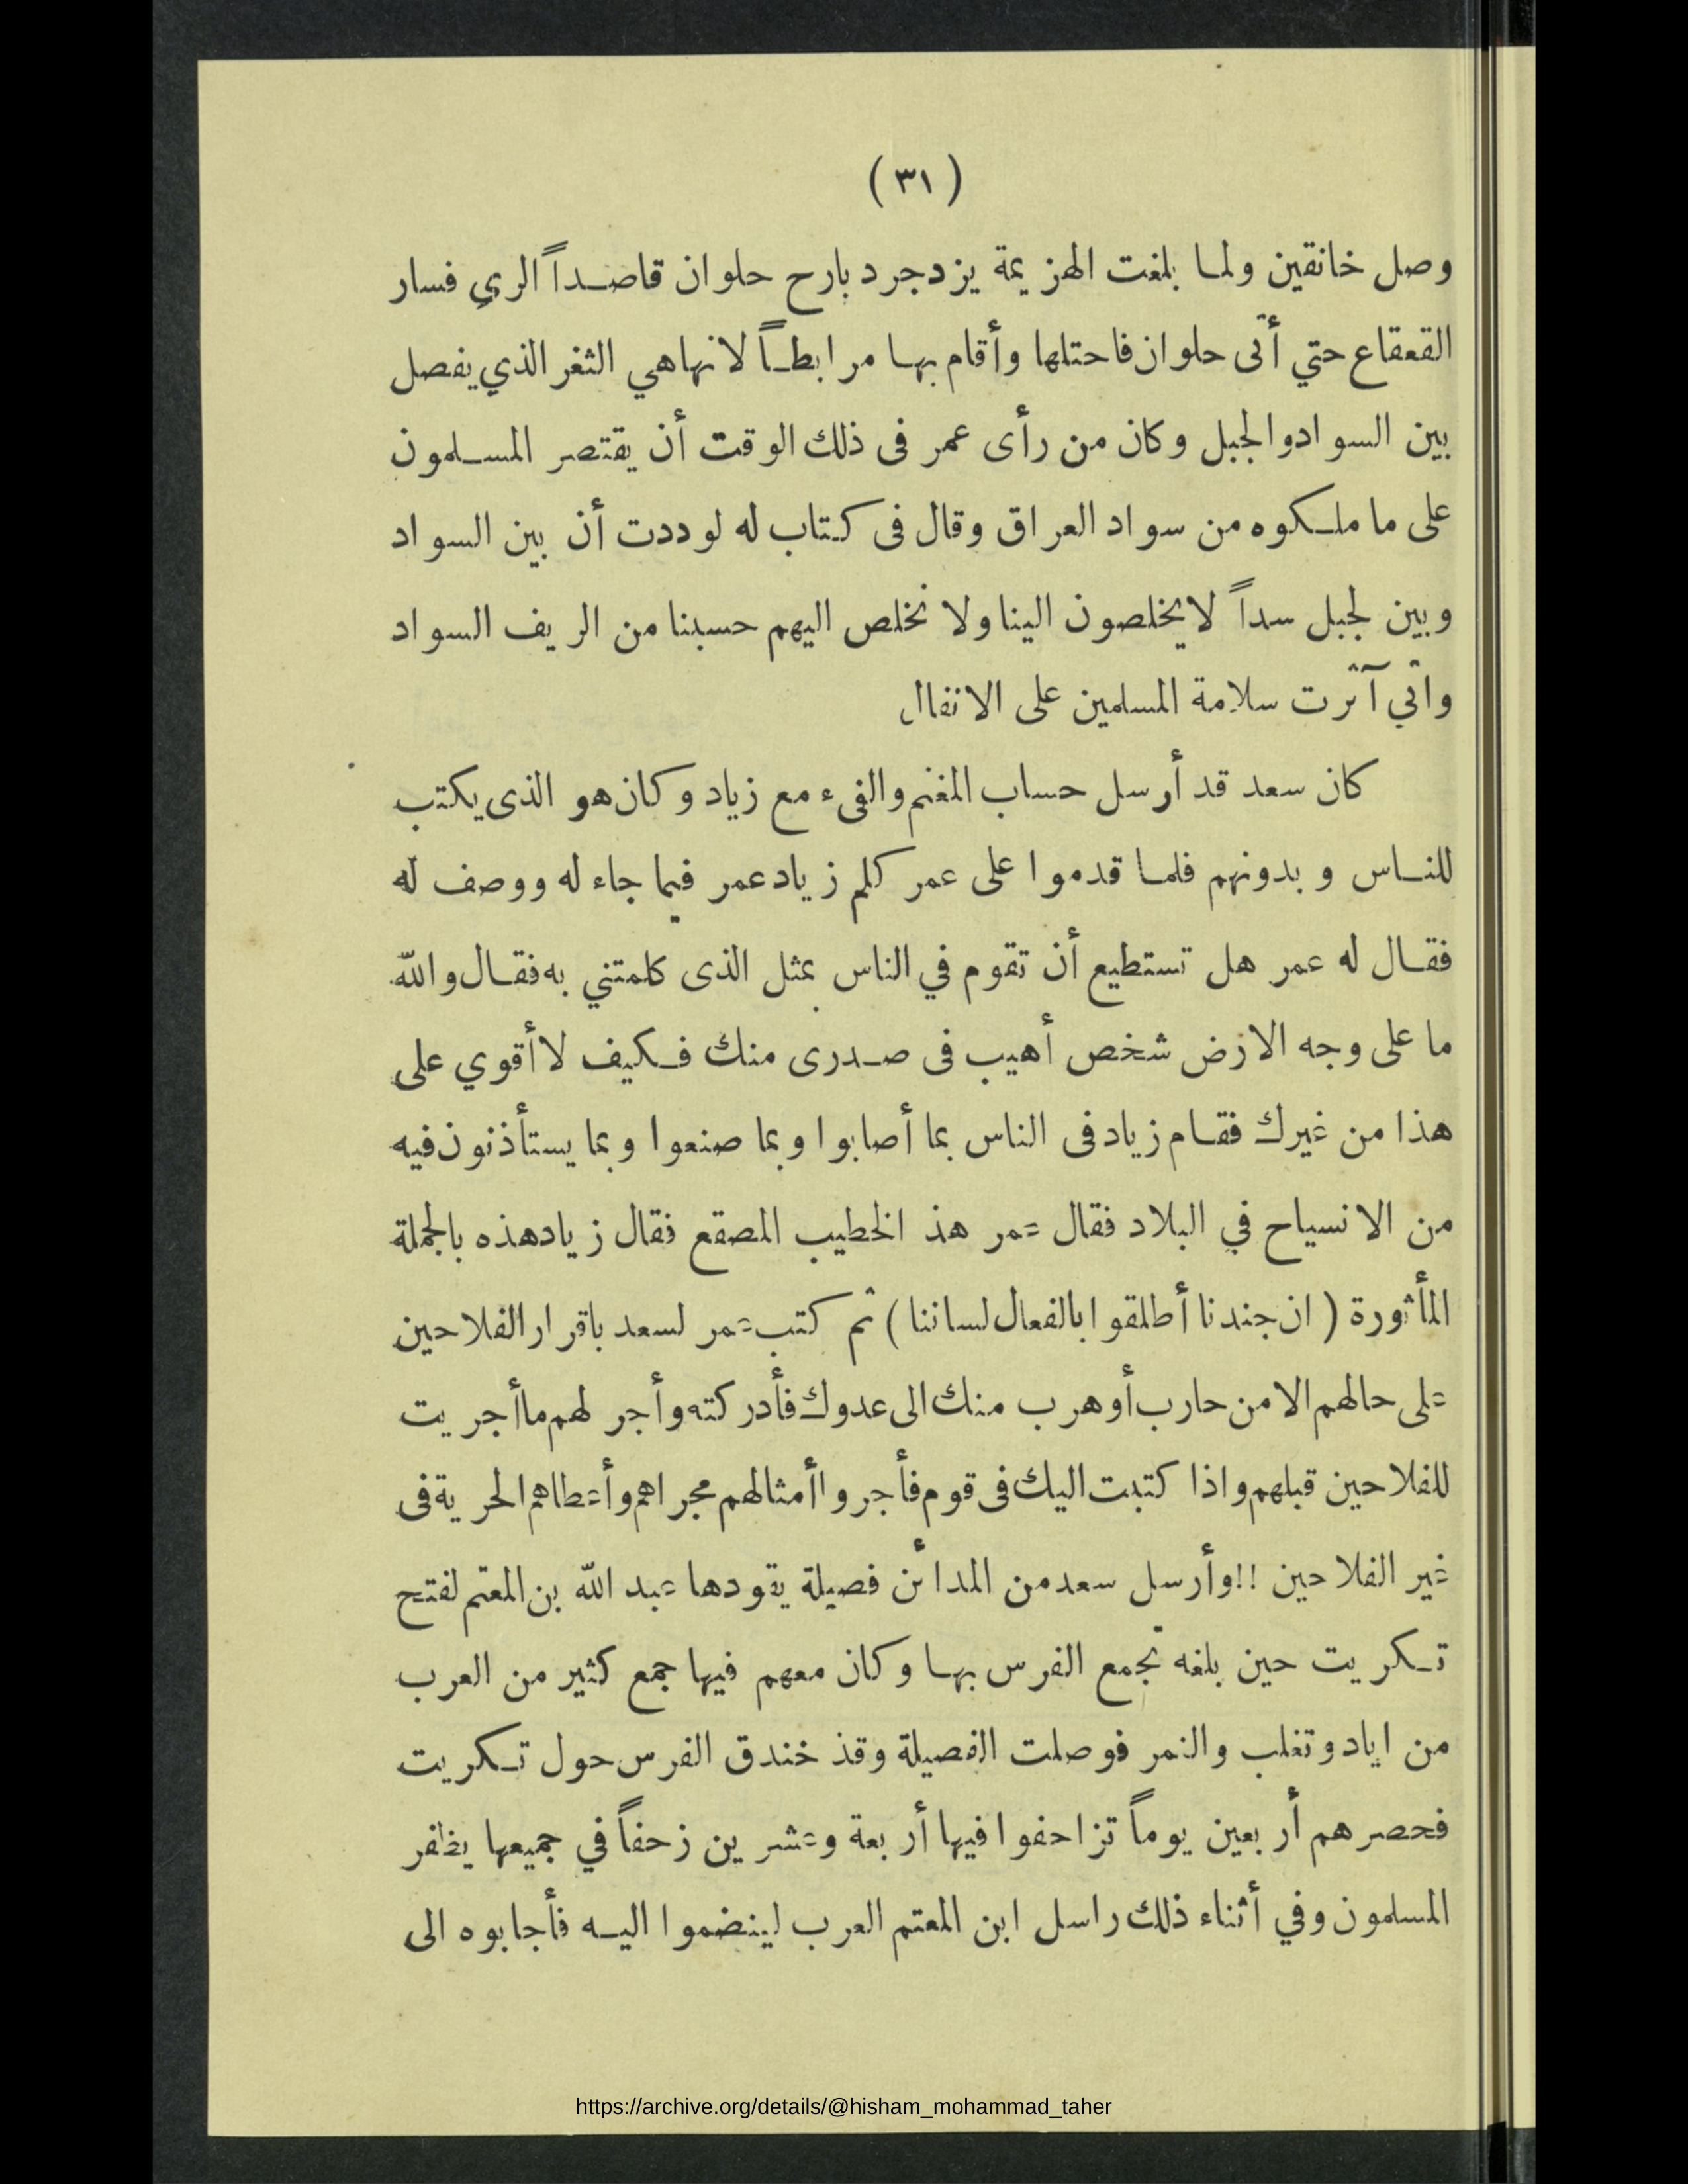 ( ٣١ )
وصل خانقين ولما بلغت الهزيمة يزدجرد بارح حلوان قاصداً الري فسار
القعقاع حتي أتى حلوان فاحتلها وأقام بها مرابطاً لانها هي الثغر الذي يفصل
بين السواد والجبل وكان من رأى عمر فى ذلك الوقت أن يقتصر المسلمون
على ما ملكوه من سواد العراق وقال فى كتاب له لوددت أن بين السواد
وبين لجبل سداً لا يخلصون الينا ولا نخلص اليهم حسبنا من الريف السواد
واني آثرت سلامة المسلمين على الانفال
كان سعد قد أرسل حساب المغنم والفىء مع زياد وكان هو الذى يكتب
للناس وبدونهم فلما قدموا على عمر كلم زياد عمر فيما جاء له ووصف له
فقال له عمر هل تستطيع أن تقوم في الناس بمثل الذى كلمتني به فقال والله
ما على وجه الارض شخص أهيب فى صدرى منك فكيف لا أقوي على
هذا من غيرك فقام زياد فى الناس بما أصابوا وبما صنعوا وبما يستأذنون فيه
من الانسياح في البلاد فقال عمر هذ الخطيب المصقع فقال زياد هذه بالجملة
المأثورة ( ان جندنا أطلقوا بالفعال لساننا ) ثم كتب عمر لسعد باقرار الفلاحين
على حالهم الا من حارب أو هرب منك الى عدوك فأدركته وأجر لهم ما أجريت
للفلاحين قبلهم واذا كتبت اليك فى قوم فأجروا أمثالهم مجراهم وأعطاهم الحرية فى
غير الفلاحين !! وأرسل سعد من المدائن فصيلة يقودها عبد الله بن المعتم لفتح
تكريت حين بلغه تجمع الفرس بها وكان معهم فيها جمع كثير من العرب
من اياد وتغلب والنمر فوصلت الفصيلة وقذ خندق الفرس حول تكريت
فحصرهم أربعين يوماً تزاحفوا فيها أربعة وعشرين زحفاً في جميعها يظفر
المسلمون وفي أثناء ذلك راسل ابن المعتم العرب لينضموا اليه فأجابوه الى
https://archive.org/details/@hisham_mohammad_taher